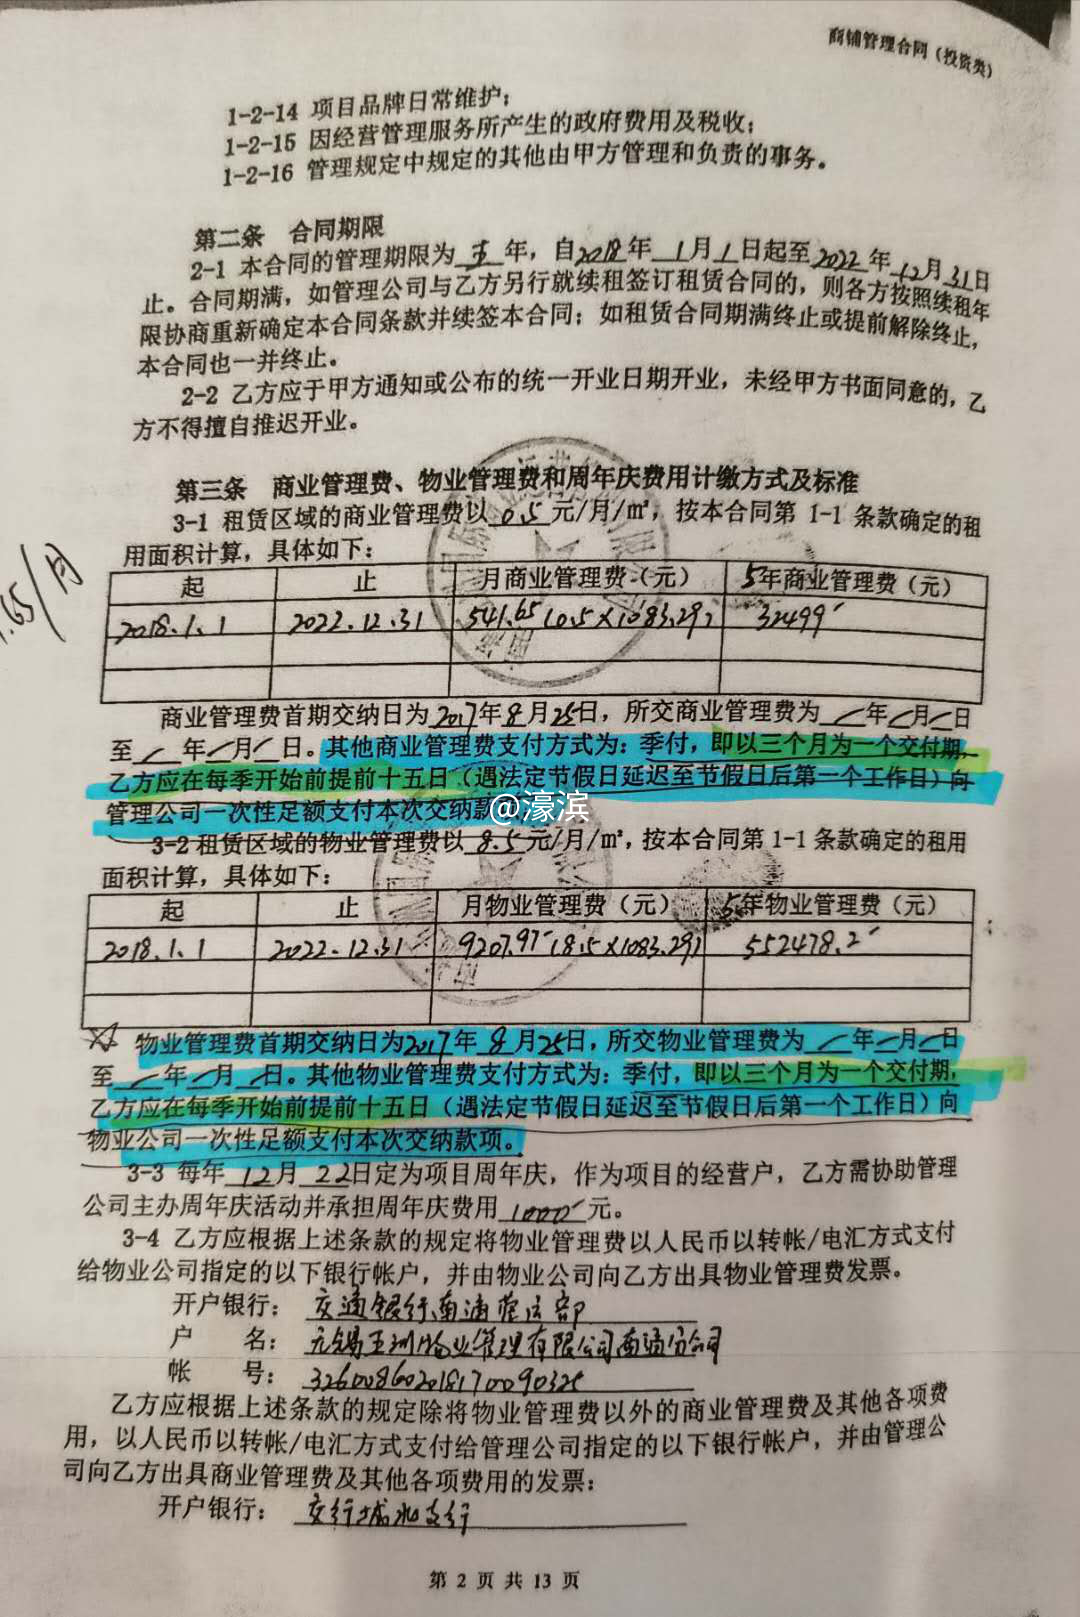 商铺管理合同（投资类）
1-2-14 项目品牌日常维护；
1-2-15 因经营管理服务所产生的政府费用及税收；
1-2-16 管理规定中规定的其他由甲方管理和负责的事务。
第二条 合同期限
2-1 本合同的管理期限为 五 年，自2018年 1月1日起至2022年12月31日
止。合同期满，如管理公司与乙方另行就续租签订租赁合同的，则各方按照续租年
限协商重新确定本合同条款并续签本合同；如租赁合同期满终止或提前解除终止，
本合同也一并终止。
2-2 乙方应于甲方通知或公布的统一开业日期开业，未经甲方书面同意的，乙
方不得擅自推迟开业。
第三条 商业管理费、物业管理费和周年庆费用计缴方式及标准
3-1 租赁区域的商业管理费以 0.5 元/月/㎡，按本合同第 1-1 条款确定的租
用面积计算，具体如下：
.65/月
起 止 月商业管理费（元） 5年商业管理费（元）
2018.1.1 2022.12.31 541.65 (0.5×1083.29) 32499
商业管理费首期交纳日为2017年8月25日，所交商业管理费为 / 年/月/日
至 / 年/月/日。其他商业管理费支付方式为：季付，即以三个月为一个交付期，
乙方应在每季开始前提前十五日（遇法定节假日延迟至节假日后第一个工作日）向
管理公司一次性足额支付本次交纳款项。
@濠滨
3-2 租赁区域的物业管理费以 8.5 元/月/㎡，按本合同第 1-1 条款确定的租用
面积计算，具体如下：
起 止 月物业管理费（元） 5年物业管理费（元）
2018.1.1 2022.12.31 9207.97 (8.5×1083.29) 552478.2
物业管理费首期交纳日为2017年 8月25日，所交物业管理费为 / 年/月/日
至 / 年/月/日。其他物业管理费支付方式为：季付，即以三个月为一个交付期，
乙方应在每季开始前提前十五日（遇法定节假日延迟至节假日后第一个工作日）向
物业公司一次性足额支付本次交纳款项。
3-3 每年 12月 22日定为项目周年庆，作为项目的经营户，乙方需协助管理
公司主办周年庆活动并承担周年庆费用 1000 元。
3-4 乙方应根据上述条款的规定将物业管理费以人民币以转帐/电汇方式支付
给物业公司指定的以下银行帐户，并由物业公司向乙方出具物业管理费发票。
开户银行： 交通银行南通营运部
户 名： 无锡五洲物业管理有限公司南通分公司
帐 号： 326008602018170090325
乙方应根据上述条款的规定除将物业管理费以外的商业管理费及其他各项费
用，以人民币以转帐/电汇方式支付给管理公司指定的以下银行帐户，并由管理公
司向乙方出具商业管理费及其他各项费用的发票：
开户银行： 交行城北支行
第 2 页 共 13 页